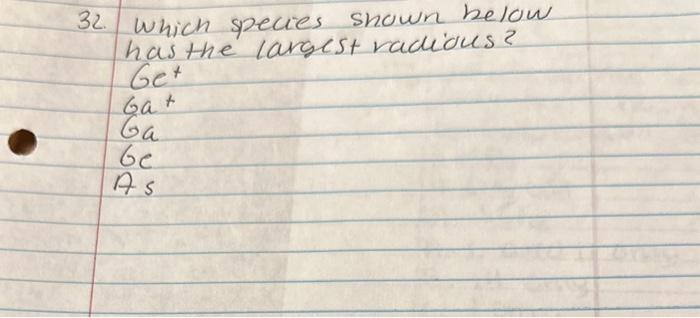 32. Which species shown below
has the largest radious?
Ge+
Ga+
Ga
Ge
As